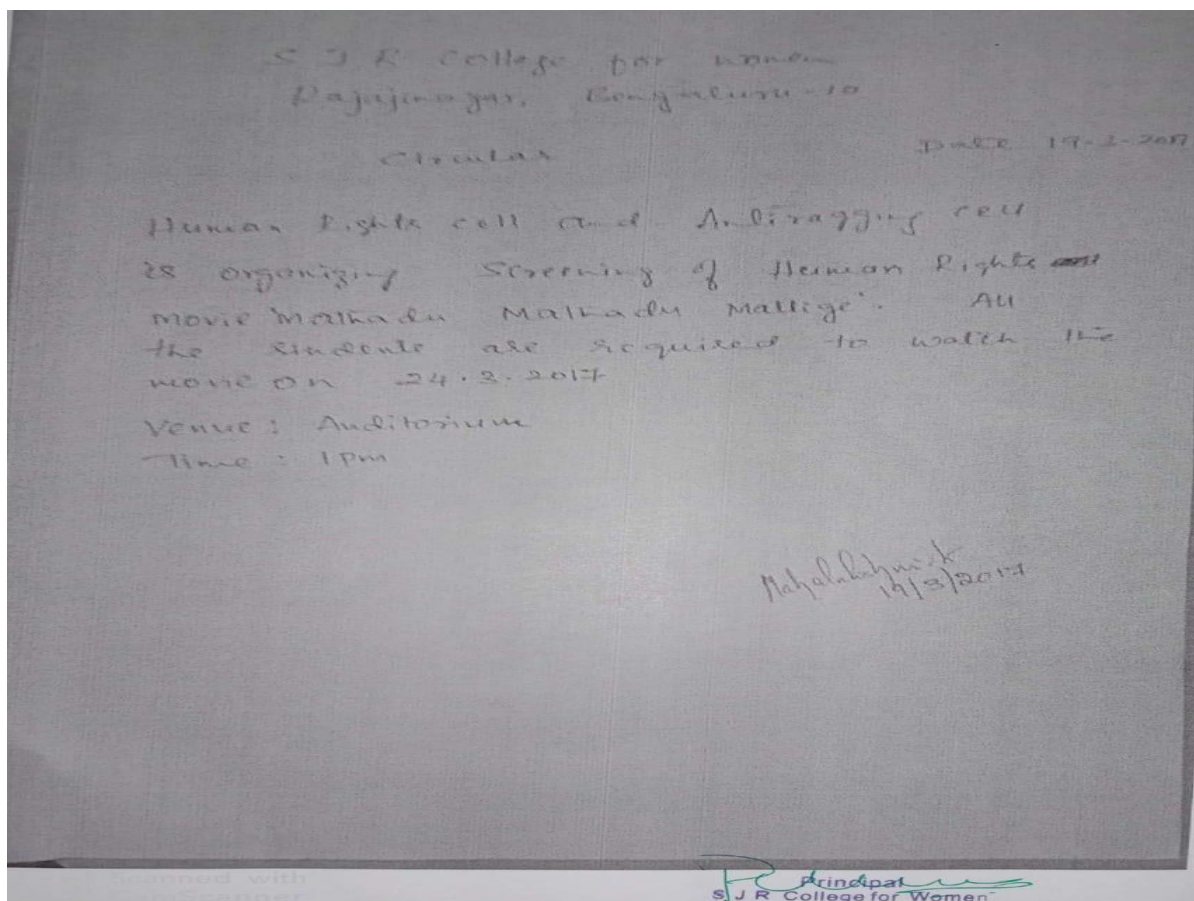 S J R College for women
Rajajinagar, Bengaluru-10
Circular
Date 19-3-2017
Human Rights cell and Antiragging cell
is organizing Screening of Human Rights
movie 'Mathadu Mathadu Mallige'. All
the students are required to watch the
movie on 24.3.2017
Venue: Auditorium
Time: 1 Pm
Mahalakshmi.K
19/3/2017
Scanned with
Principal
S J R College for Women